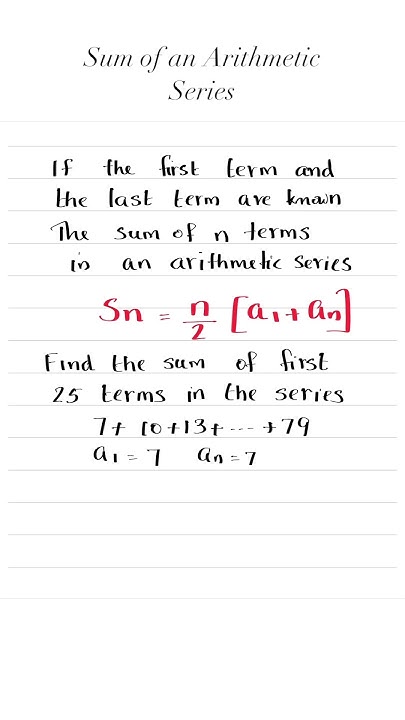 Sum of an Arithmetic
Series
If the first term and
the last term are known
The sum of n terms
in an arithmetic series
Sn = n/2 [a₁ + an]
Find the sum of first
25 terms in the series
7+ 10+13+ --- +79
a₁ = 7 an = 7